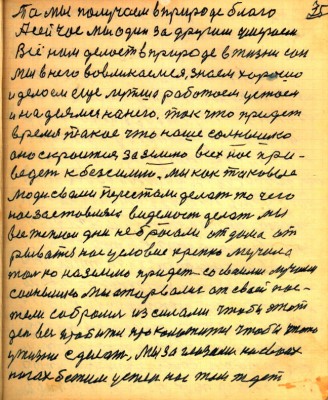 75
Та мы получаем в природе благо
А сейчас мы один за другим умираем
Всё нам делость в природе в жизни сон
мы в него вовлекаемся, знаем хорошо
и делаем еще лутше работаем устаем
и надеямся на него, так что придет
время такое что наше солнышко
оно скроится за землю всех нас при-
ведет к безсилию. Мы как таковые
люди сами перестали делат то чего
нас заставляла делат мы
все теплои дни не бросали от дома от
рыватся нас условие крепко мучило
толко на землю придет со своими лучами
солнышко мы оторвалис от своей пос-
тели собралис из силами чтобы этот
ден весь прожити чтобы что то
в жизни сделат, мы за глазами на своих
ногах бежим успех нас там ждет